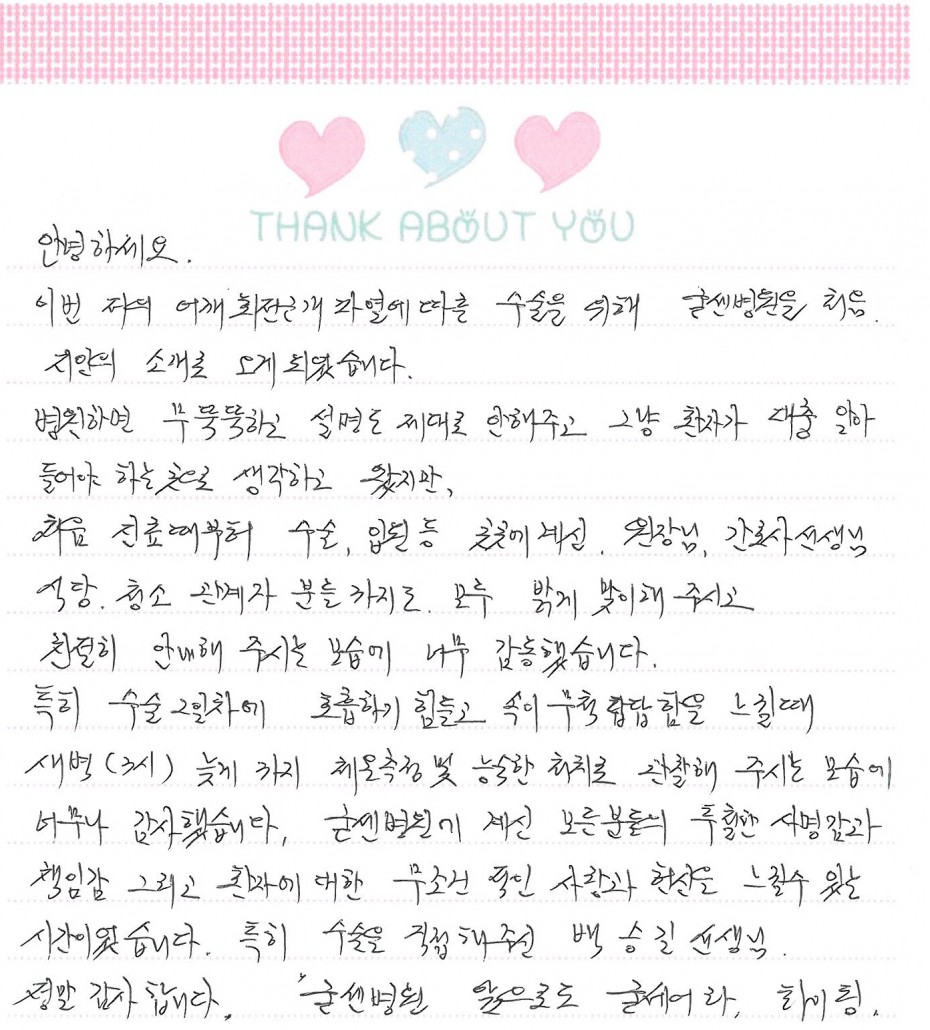 THANK ABOUT YOU
안녕하세요.
이번 저의 어깨 회전근개 파열에 따른 수술을 위해 굳센병원을 처음
지인의 소개로 오게 되었습니다.
병원하면 무뚝뚝하고 설명도 제대로 안해주고 그냥 환자가 대충 알아
들어야 하는 곳으로 생각하고 왔지만,
처음 진료때부터 수술, 입원 등 곳곳에 계신. 원장님, 간호사선생님
식당. 청소 관계자 분들 까지도. 모두 밝게 맞이해 주시고
친절히 안내해 주시는 모습에 너무 감동했습니다.
특히 수술 2일차에 호흡하기 힘들고 속이 무척 답답함을 느낄때
새벽 (3시) 늦게 까지 체온측정 및 능숙한 처치로 관찰해 주시는 모습에
너무나 감사했습니다. 굳센병원에 계신 모든분들의 투철한 사명감과
책임감 그리고 환자에 대한 무조건 적인 사랑과 헌신을 느낄수 있는
시간이였습니다. 특히 수술을 직접해주신 백 승 길 선생님.
정말 감사 합니다. "굳센병원 앞으로도 굳세어라, 화이팅.